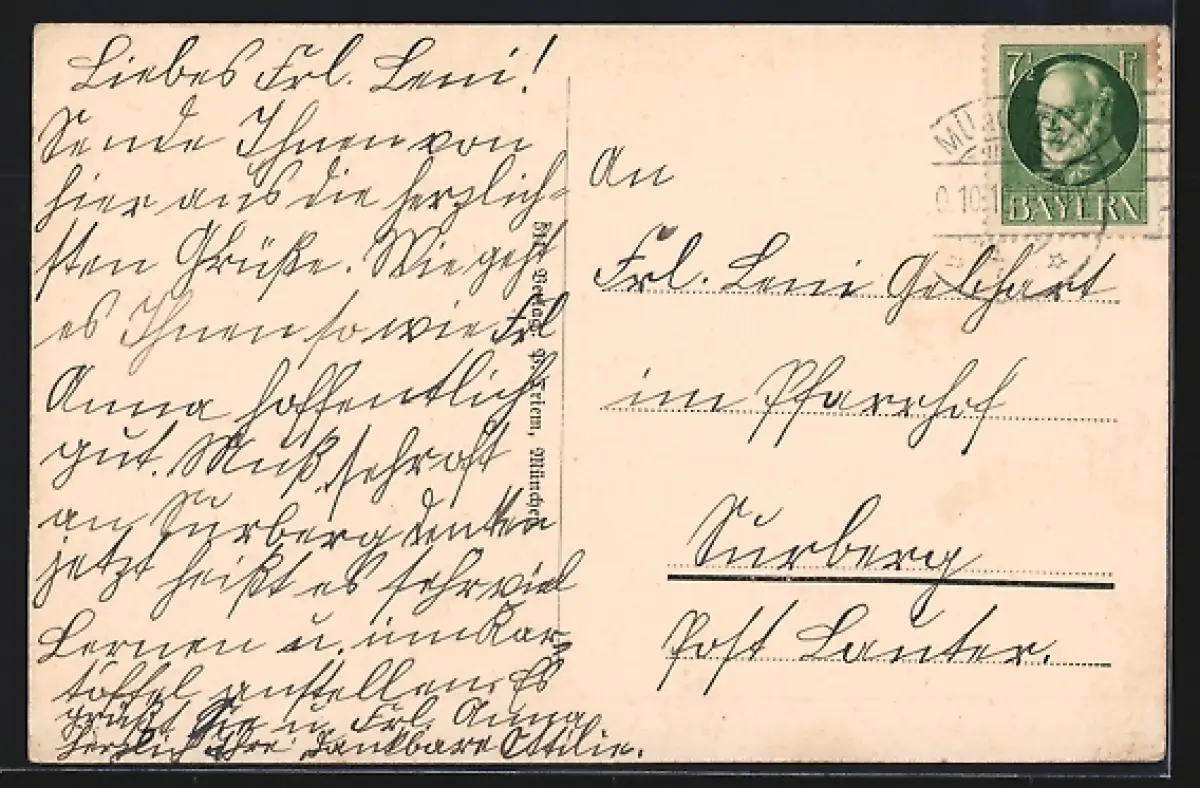 Liebes Frl. Leni!
Sende Ihnen von
hier aus die herzlich-
sten Grüße. Wie geht
es Ihnen so wie Frl
Anna hoffentlich
gut. Muß sehr oft
an Surberg denken
jetzt heißt es sehr viel
Lernen u. um Kar-
töffel anstellen. Es
grüßt Sie u. Frl. Anna
herzlich Ihre dankbare Ottilie.
Verlag P. Triem, München
7½ Pf
BAYERN
MÜ
10
An
Frl. Leni Gebhart
im Pfarrhof
Surberg
Post Lauter.